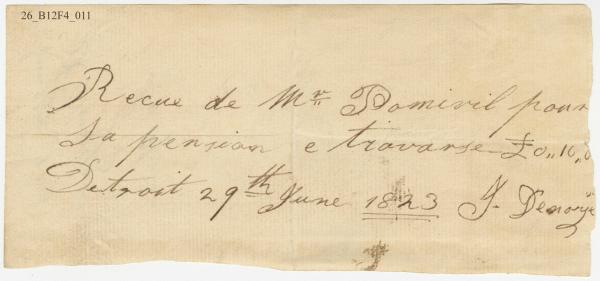 26_B12F4_011
Recue de Mr Domivil pour
Sa pension e travarse £0,,10,,0
Detroit 29th June 1823 J. Denoyé